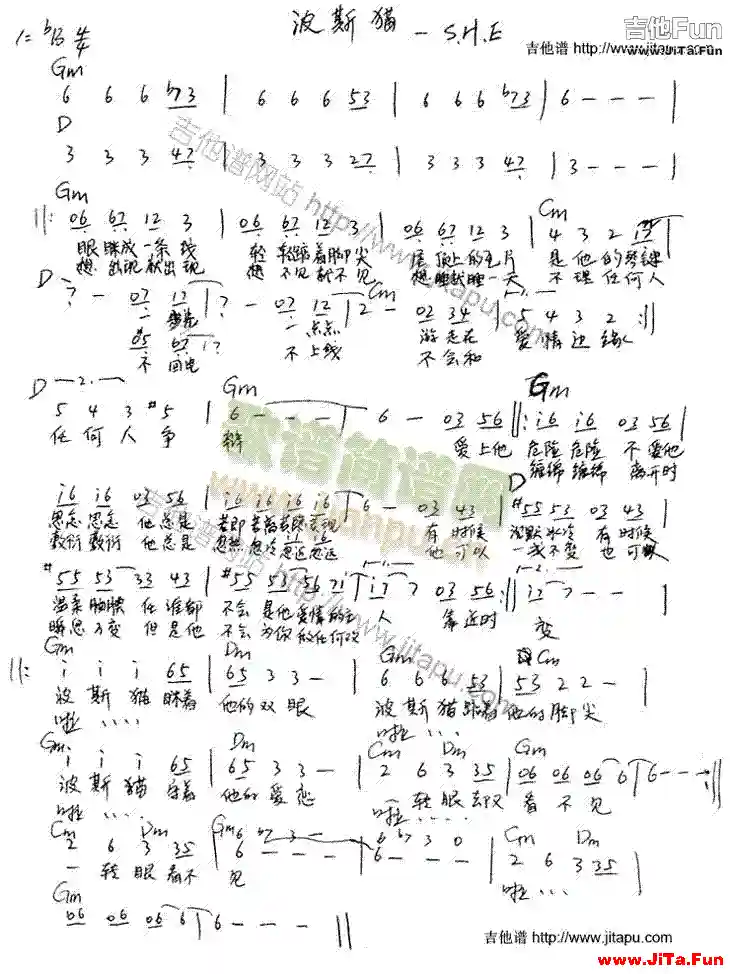 波斯猫 - S.H.E
吉他Fun
吉他谱 http://www.jitapu.com
www.JiTa.Fun
1=ᵇB 4/4
Gm
6 6 6 b73 | 6 6 6 53 | 6 6 6 b73 | 6 - - - |
D
3 3 3 47 | 3 3 3 27 | 3 3 3 47 | 3 - - - |
Gm Cm
||: 06 67 12 3 | 06 67 12 3 | 06 67 12 3 | 4 3 2
眼眯成一条线 轻轻踮着脚尖 尾巴上的毛片 是他的琴键
想出现就出现 想不见就不见 想睡就睡一天 不理任何人
D Cm
7 - 07 12 | 7 - 07 12 | 2 - 02 34 | 5 4 3 2 :||
一步步 一点点 游走在 爱情边缘
不回电 不上线 不会和
D Gm Gm
5 4 3 #5 | 6 - - - | 6 - 03 56 ||: i6 i6 03 56 |
任何人争 辩 爱上他 危险危险 不爱他
缠绵缠绵 离开时
D
i6 i6 03 56 | i6 i6 i6 i6 | 6 - 03 43 | #55 53 03 43 |
思念思念 他总是 若即若离若隐若现 有时候 沉默冰冷 有时候
敷衍敷衍 他总是 忽然忽冷忽近忽远 他可以 一成不变 也可以
#55 53 33 43 | #55 53 56 7i | i7 7 03 56 :|| i7 7 - - |
温柔腼腆 任谁都 不会是他爱情的主 人 靠近时 变
瞬息万变 但是他 不会为你做任何改
Gm Dm Gm Cm
||: i i i 65 | 65 3 3 - | 6 6 6 53 | 53 2 2 - |
波斯猫眯着 他的双眼 波斯猫踮着 他的脚尖
啦.... 啦....
Gm Dm Cm Dm Gm
i i i 65 | 65 3 3 - | 2 6 3 35 | 06 06 06 6 | 6 - - - :||
波斯猫守着 他的爱恋 一转眼却又 看不见
啦.... 啦....
Cm Dm Gm Cm Dm
2 6 3 35 | 6 - - - | 6 - - - | 2 6 3 35 |
一转眼看不 见 啦...
Gm
06 06 06 6 | 6 - - - ||
吉他谱网站 http://www.jitapu.com
吉他谱网站 http://www.jitapu.com
歌谱简谱网
吉他谱 http://www.jitapu.com
www.JiTa.Fun